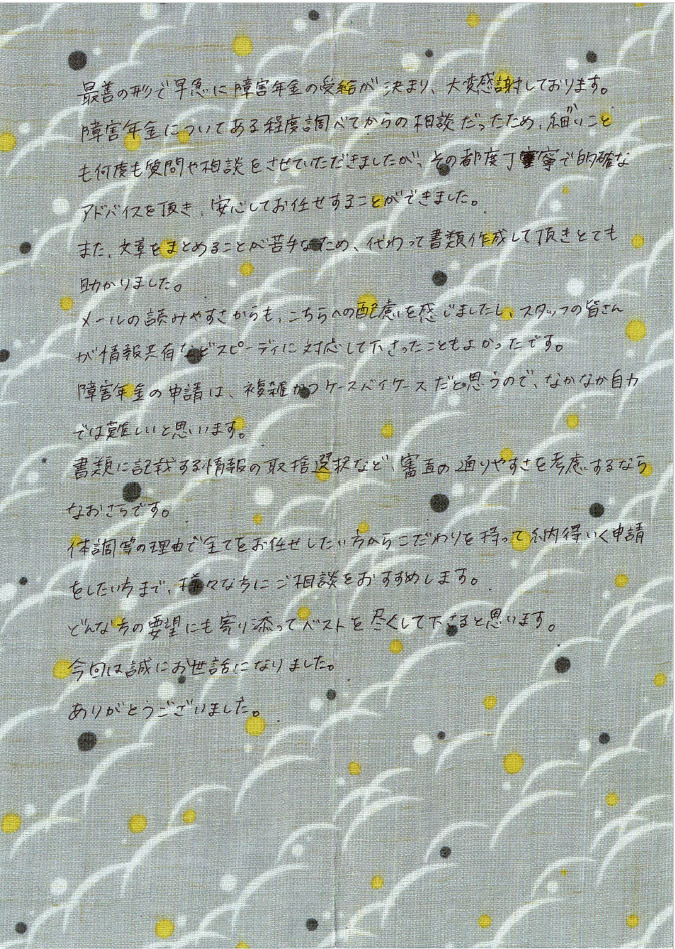 最善の形で早急に障害年金の受給が決まり、大変感謝しております。
障害年金についてある程度調べてからの相談だったため、細いこと
も何度も質問や相談をさせていただきましたが、その都度丁寧で的確な
アドバイスを頂き、安心してお任せすることができました。
また、文章をまとめることが苦手なため、代わって書類作成して頂きとても
助かりました。
メールの読みやすさからも、こちらへの配慮を感じましたし、スタッフの皆さん
が情報共有などスピーディに対応して下さったこともよかったです。
障害年金の申請は、複雑かつケースバイケースだと思うので、なかなか自力
では難しいと思います。
書類に記載する情報の取捨選択など、審査の通りやすさを考慮するなら
なおさらです。
体調等の理由で全てをお任せしたい方からこだわりを持って納得いく申請
をしたい方まで、様々な方にご相談をおすすめします。
どんな方の要望にも寄り添ってベストを尽くして下さると思います。
今回は誠にお世話になりました。
ありがとうございました。